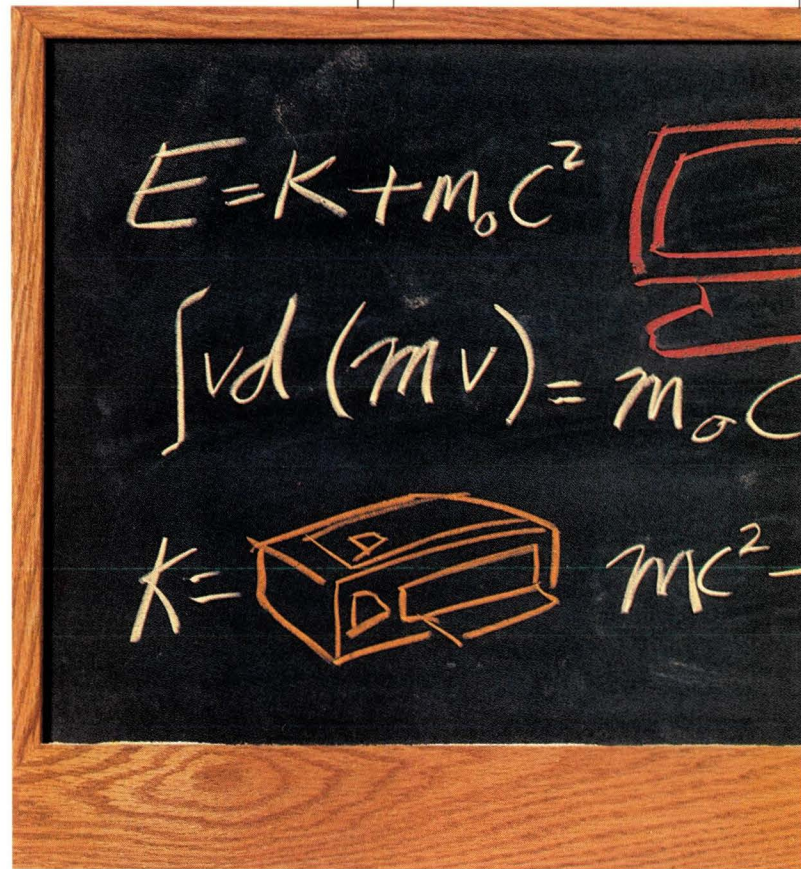 E = K + m₀C²
∫vd (mv) = m₀C
K = mc² -